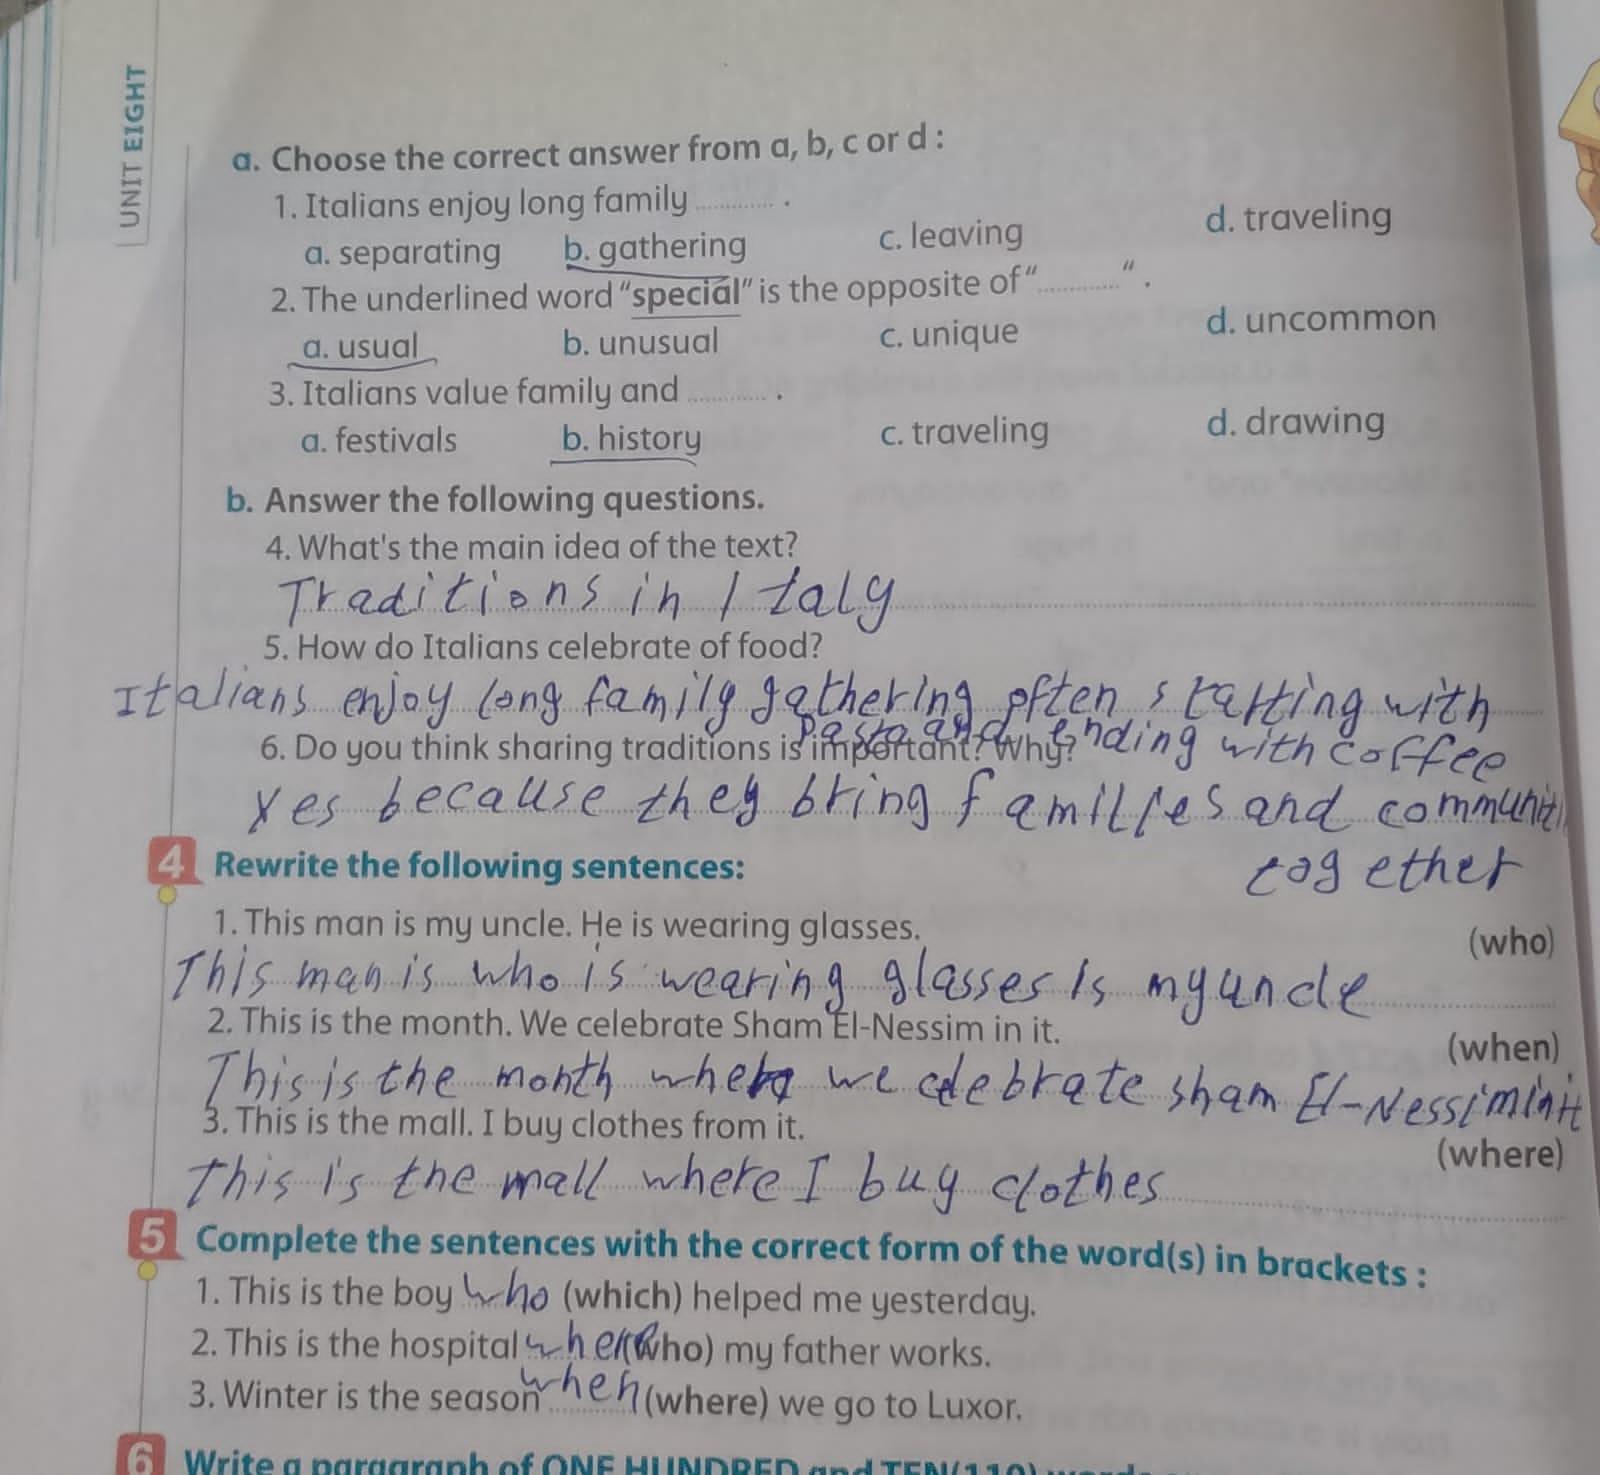 UNIT EIGHT
a. Choose the correct answer from a, b, c or d :
1. Italians enjoy long family ............ .
a. separating b. gathering c. leaving d. traveling
2. The underlined word "special" is the opposite of "............" .
a. usual b. unusual c. unique d. uncommon
3. Italians value family and ............ .
a. festivals b. history c. traveling d. drawing
b. Answer the following questions.
4. What's the main idea of the text?
Traditions in Italy
5. How do Italians celebrate of food?
Italians enjoy long family gathering often starting with
pasta and ending with coffee
6. Do you think sharing traditions is important? Why?
Yes because they bring families and communiti
together
4 Rewrite the following sentences:
1. This man is my uncle. He is wearing glasses. (who)
This man is who is wearing glasses is my uncle
2. This is the month. We celebrate Sham El-Nessim in it. (when)
This is the month when we celebrate sham El-Nessim in it
3. This is the mall. I buy clothes from it. (where)
This is the mall where I buy clothes
5 Complete the sentences with the correct form of the word(s) in brackets :
1. This is the boy who (which) helped me yesterday.
2. This is the hospital where (who) my father works.
3. Winter is the season when (where) we go to Luxor.
6 Write a paragraph of ONE HUNDRED and TEN (110) words